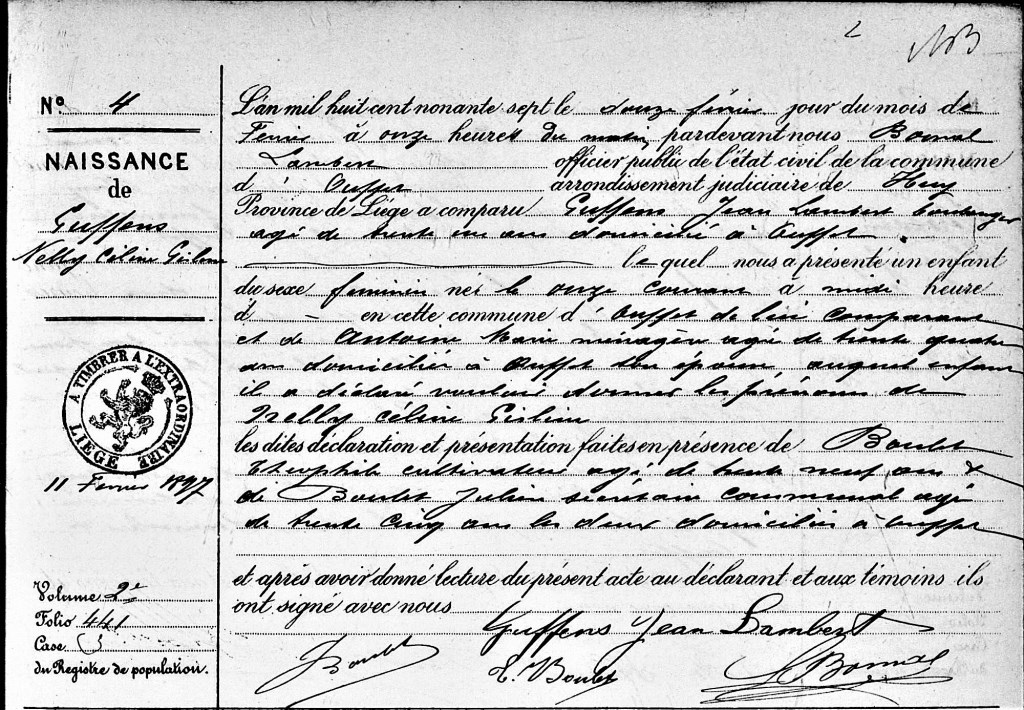 2
NB
Nº 4
NAISSANCE
de
Guffens
Nelly Céline Gislene
A TIMBRER A L'EXTRAORDINAIRE
LIEGE
11 Fevrier 1897
Volume 2e
Folio 441
Case
du Registre de population.
L'an mil huit cent nonante sept le douze février jour du mois de
Fevrier à onze heures du matin, pardevant nous Bomal
Lambert officier public de l'état civil de la commune
d'Ouffet arrondissement judiciaire de Huy
Province de Liége a comparu Guffens Jean Lambert boulanger
agé de trente un ans domicilié à Ouffet
lequel nous a présenté un enfant
du sexe feminin née le onze courant à midi heure
d - en cette commune d'Ouffet de lui comparant
et de Antoine Marie ménagère agée de trente quatre
ans domiciliée à Ouffet son épouse, auquel enfant
il a déclaré vouloir donner les prénoms de
Nelly Céline Gislène
les dites déclaration et présentation faites en présence de Boulet
Théophile cultivateur agé de trente neuf ans &
de Boulet Julien secrétaire communal agé
de trente cinq ans les deux domiciliés à Ouffet
et après avoir donné lecture du présent acte au déclarant et aux témoins ils
ont signé avec nous
Guffens Jean Lambert
J Boulet T. Boulet L Bomal